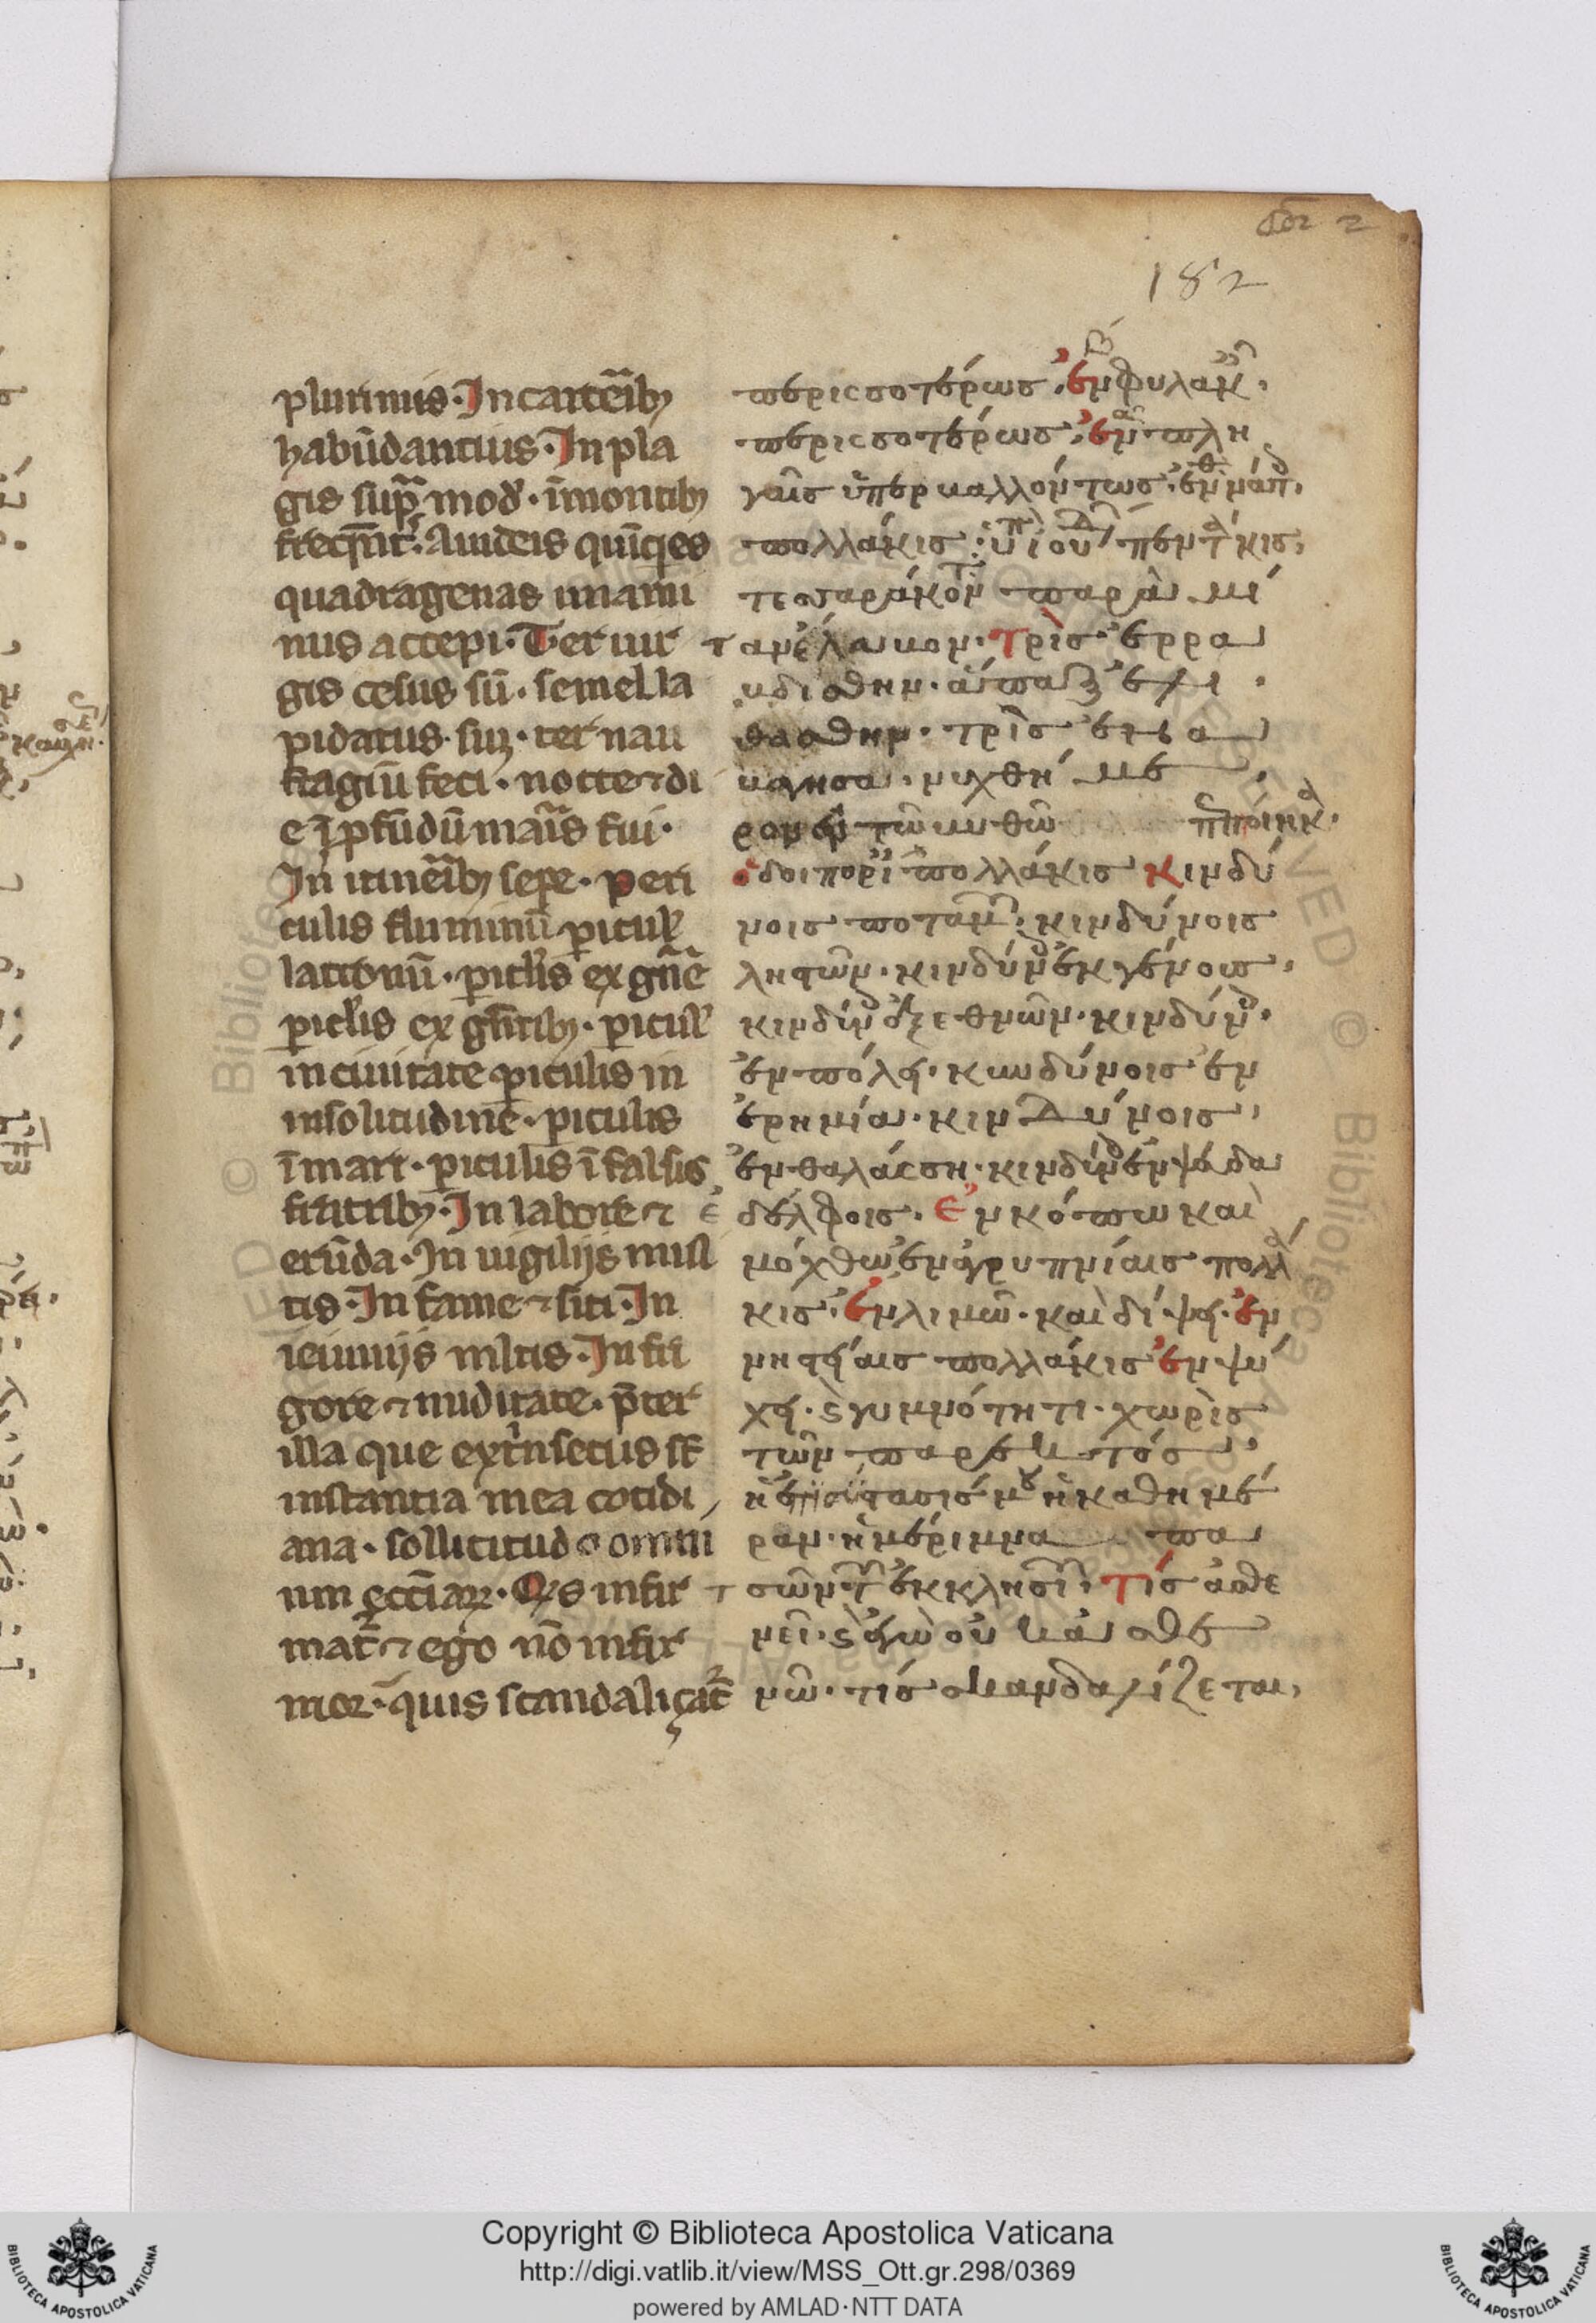 182
plurimis. In carcẽibꝫ
habũdantius. In pla
gis supᷓ mod̛. ĩ montibꝫ
freq̃nt̛. A iudeis quĩqies
quadragenas una mi
nus accepi. Ter uir
gis cesus sũ. semel la
pidatus suꝫ. ter nau
fragiũ feci. nocte ⁊ di
e ĩ ꝓfũdũ maris fui.
In itinẽibꝫ sepe. peri
culis fluminũ ꝑicul̛
latronũ. ꝑicl̛is ex gñe
ꝑicl̛is ex gñtibꝫ. ꝑicul̛
in ciuitate ꝑiculis in
in solitudine. ꝑiculis
ĩ mari. ꝑiculis ĩ falsis
fratribꝫ. In labore ⁊
erũda. In uigilijs mul
tis. In fame ⁊ siti. In
ieiunijs ml̃tis. In fri
gore ⁊ nuditate. p̃ter
illa que extrinsecus st̃
instantia mea cotidi
ana. sollicitudo omni
um eccĩaꝝ. Qis infir
mat̃ ⁊ ego nõ infir
mor. quis scandaliçat̃
περισσοτέρως. ἐν φυλακ.
περισσοτέρως. ἐν πλη
γαῖς ὑπερβαλλόντως. ἐν
πολλάκις. ὑπ ιου πεντάκις.
τεσσαράκον παρὰ μί
αν ἔλαβον. Τρὶς ἐρρα
βδίσθην. ἅπαξ ἐλι
θάσθην. τρὶς ἐνα
υάγησα. νυχθήμε
ρον ἐν τῶ βυθῶ πεποίηκα.
ὁδοιπορί πολλάκις κινδύ
νοις ποταμ. κινδύνοις
ληστῶν. κινδύν ἐκ γένους.
κινδύν ἐξ ἐθνῶν. κινδύν.
ἐν πόλει. κινδύνοις ἐν
ἐρημία. κινδύνοις
ἐν θαλάσση. κινδύν ἐν ψευδα
δέλφοις. Ἐν κόπω καὶ
μόχθω ἐν ἀγρυπνίαις πολλά
κις. ἐν λιμῶ. καὶ δίψει. ἐν
νηστείαις πολλάκις ἐν ψύ
χει. ϗ γυμνότητι. χωρὶς
τῶν παρεκτός
ἡ ἐπισύστασίς μου ἡ καθημέ
ραν. ἡ μέριμνα πα
σῶν τ ἐκκλησι. Τίς ἀσθε
νεῖ. ϗ ἐγὼ οὐκ ἀσθε
νῶ. τίς σκανδαλίζεται,
Copyright © Biblioteca Apostolica Vaticana
http://digi.vatlib.it/view/MSS_Ott.gr.298/0369
powered by AMLAD·NTT DATA